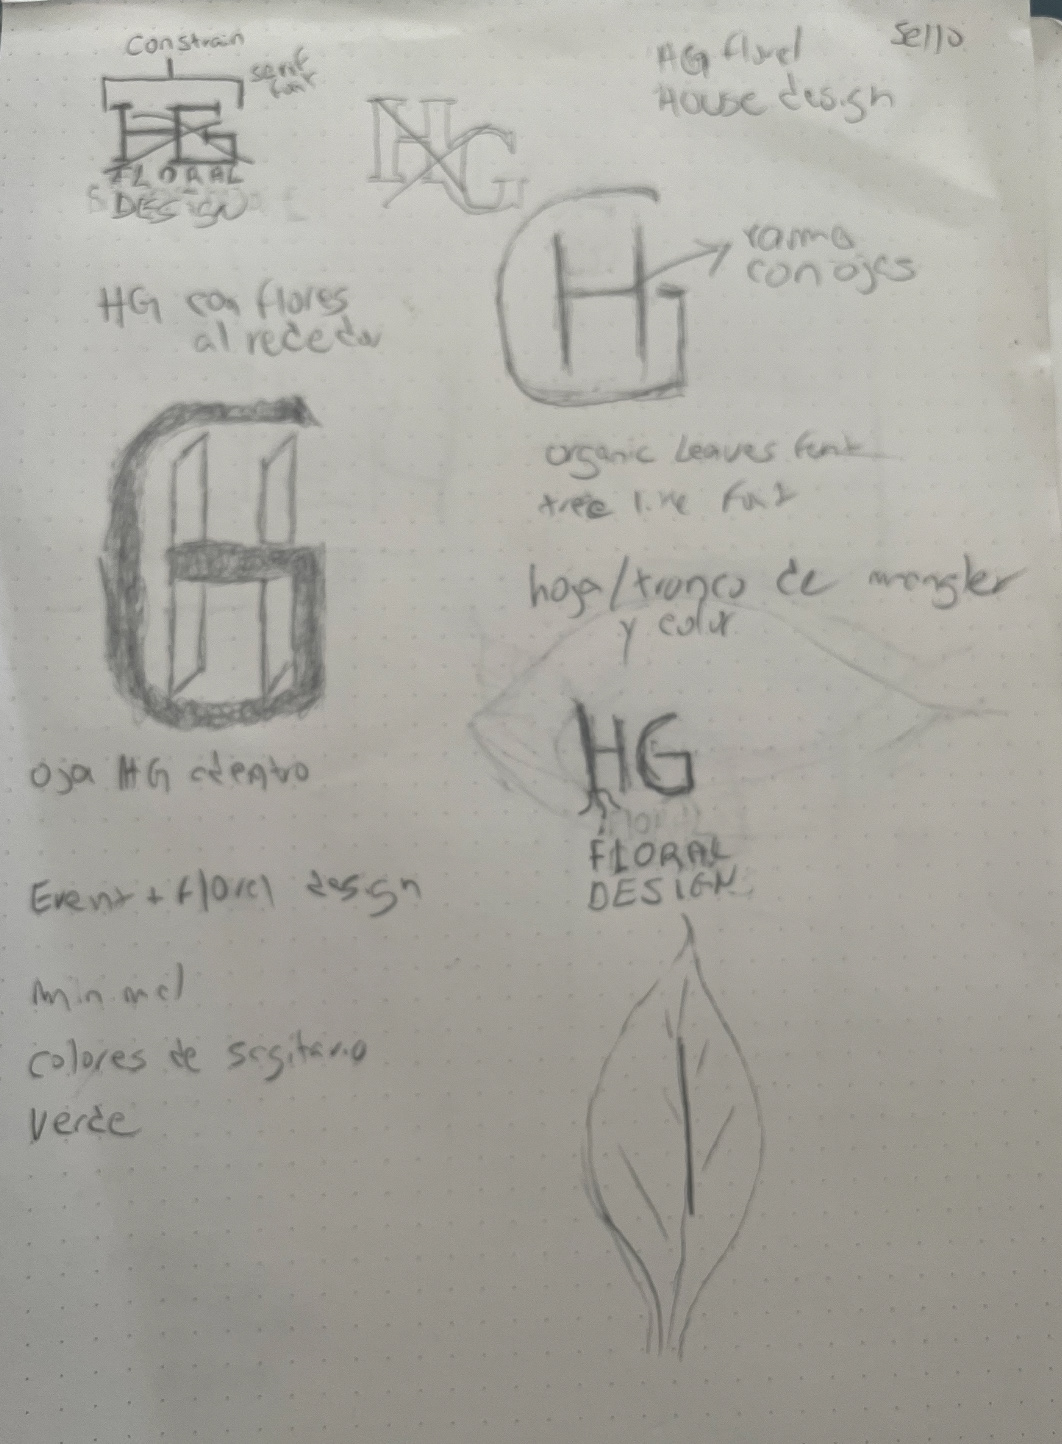 Constrain
serif
font
HG
FLORAL
DESIGN
HG
HG floral
House design
Sello
HG con flores
alrededor
GH
ramo
con ojas
organic Leaves font
tree like font
GH
hoja/tronco de mangler
y color
HG
FLORAL
DESIGN
oja HG adentro
Event + floral design
minimal
colores de sagitario
Verde